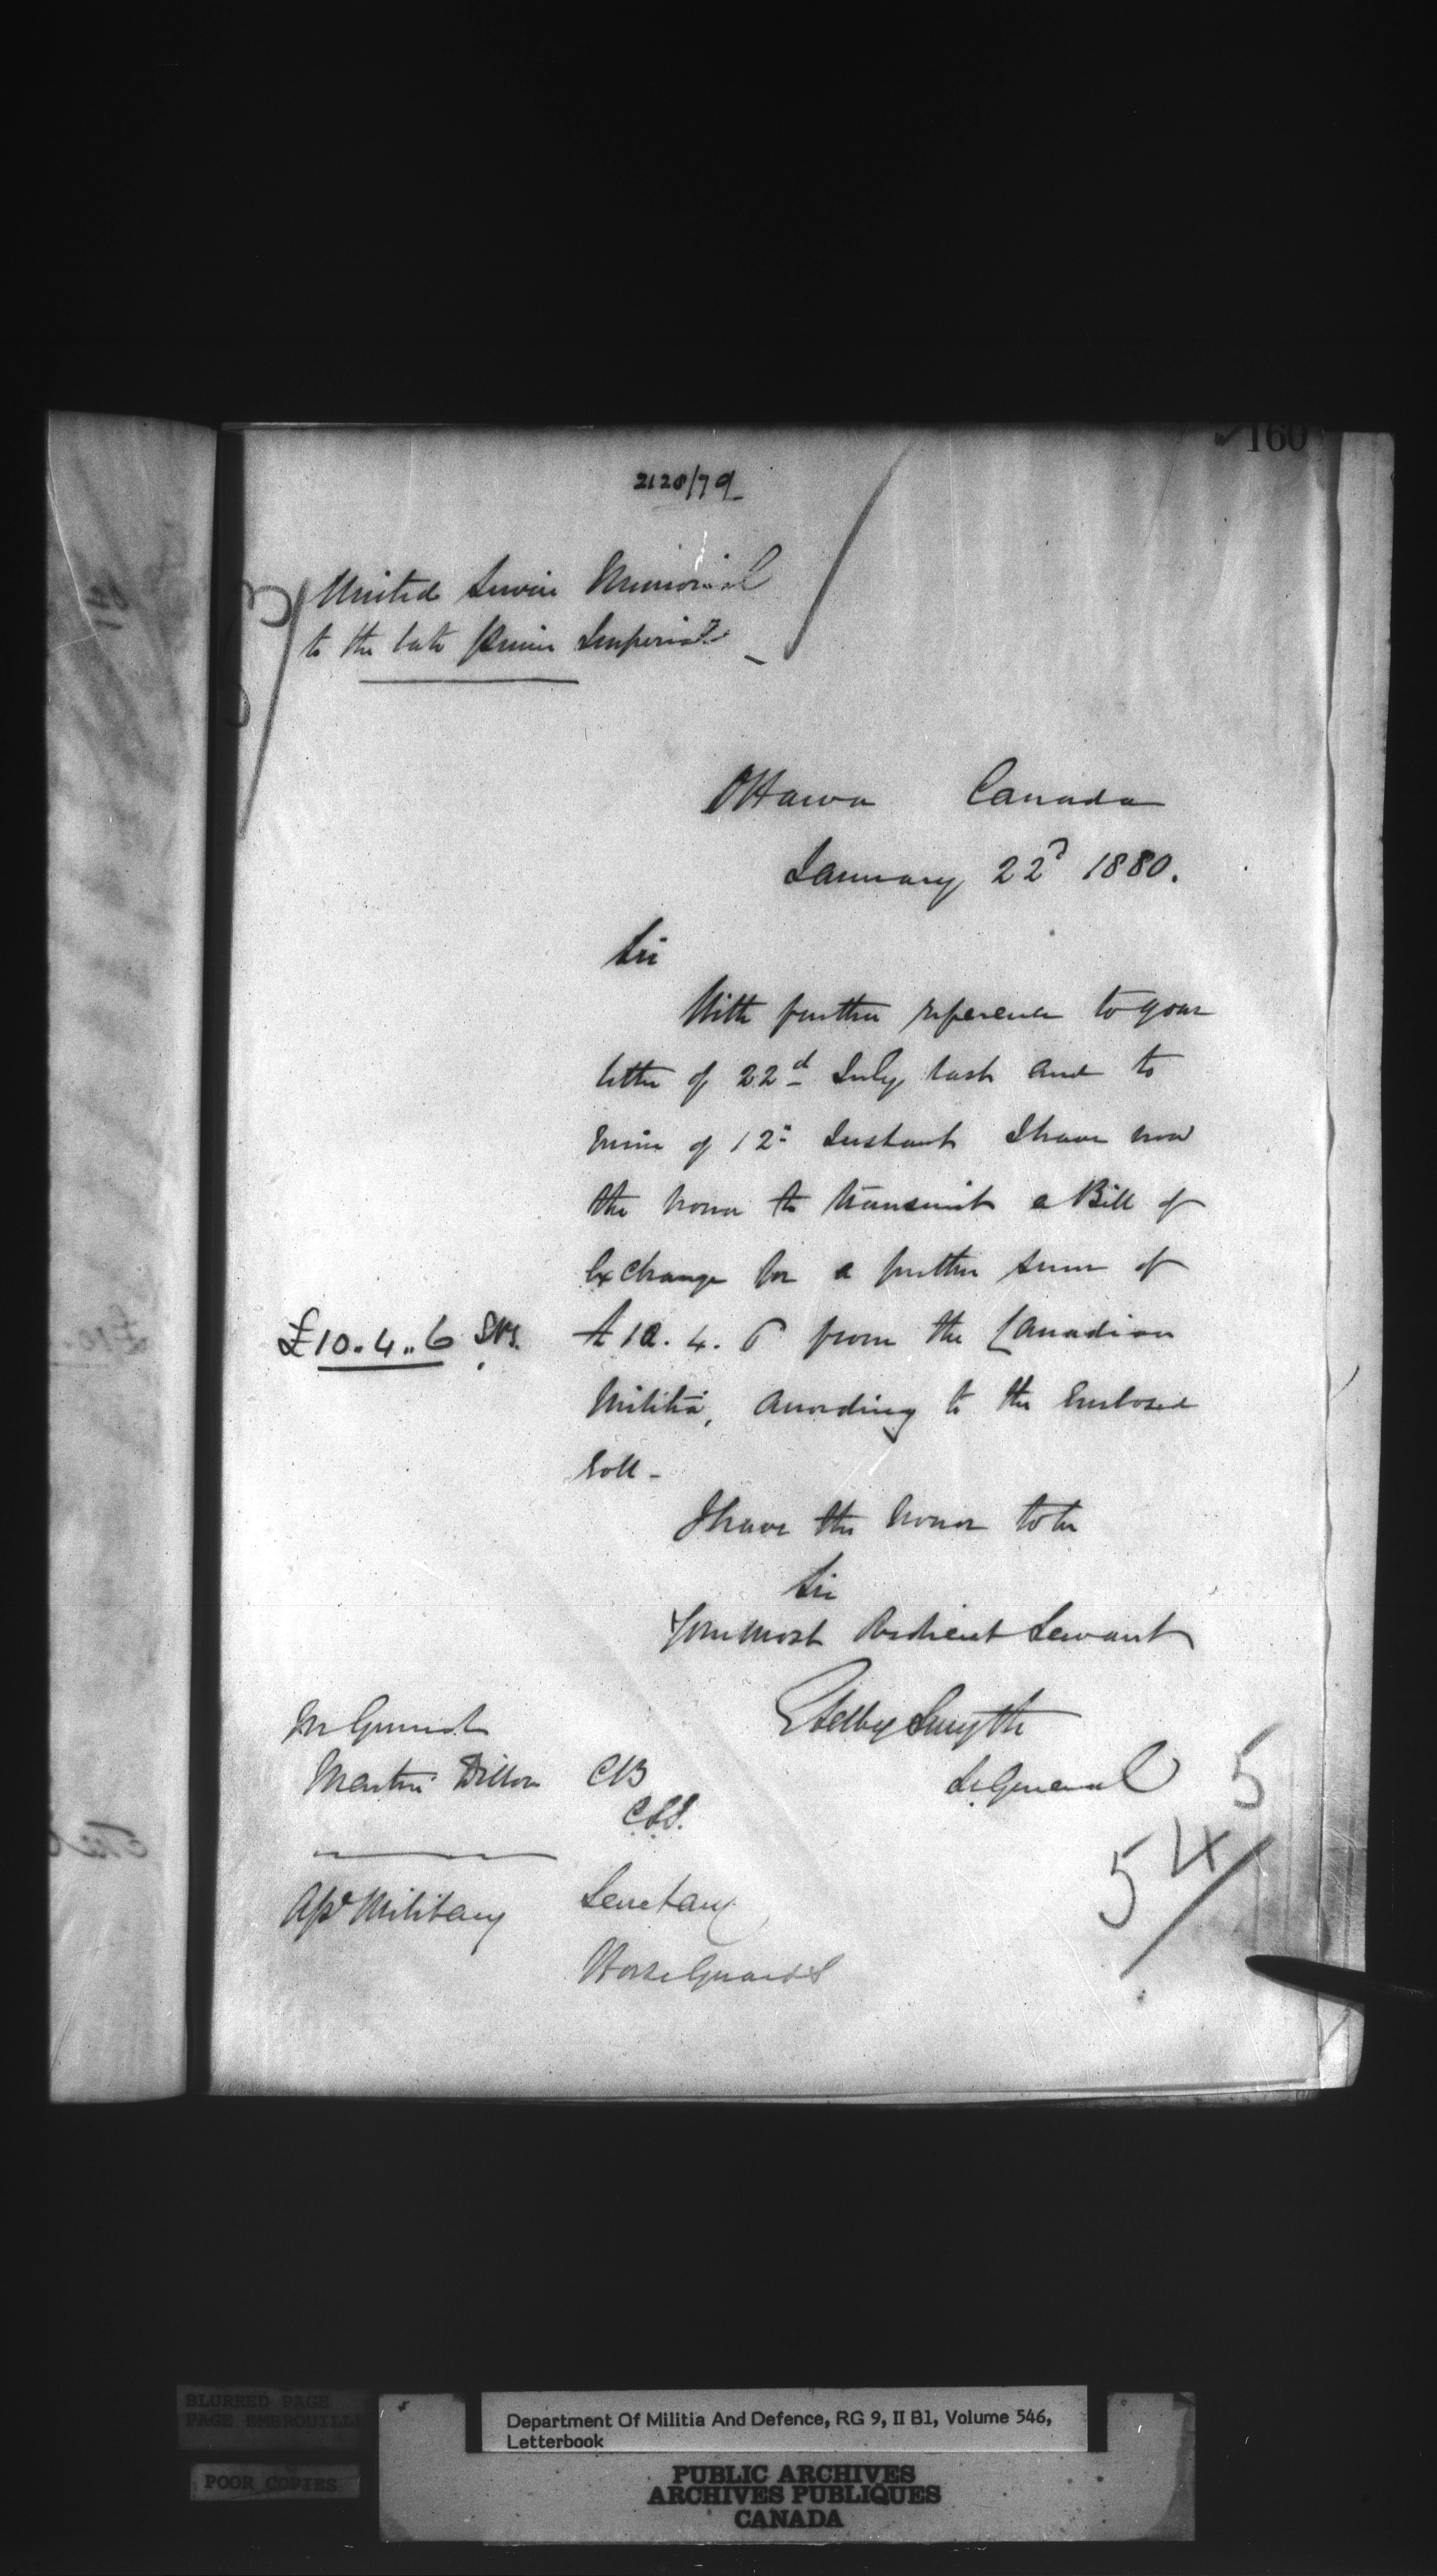 160
2128/79
United Service Memorial
to the late Prince Imperial
Ottawa Canada
January 22d 1880.
Sir
With further reference to your
letter of 22d July last and to
mine of 12th Instant I have now
the honor to transmit a Bill of
Exchange for a further sum of
£10.4..6 Stg.
£10.4.6 from the Canadian
Militia, according to the Enclosed
Roll -
I have the honor to be
Sir
Your most Obedient Servant
E Selby Smyth
Lt General
M General
Martin Dillon CB
C.S.I.
Ast Military Secretary
Horse Guards
5
54
BLURRED PAGE
PAGE EMBROUILLÉE
POOR COPIES
Department Of Militia And Defence, RG 9, II B1, Volume 546,
Letterbook
PUBLIC ARCHIVES
ARCHIVES PUBLIQUES
CANADA